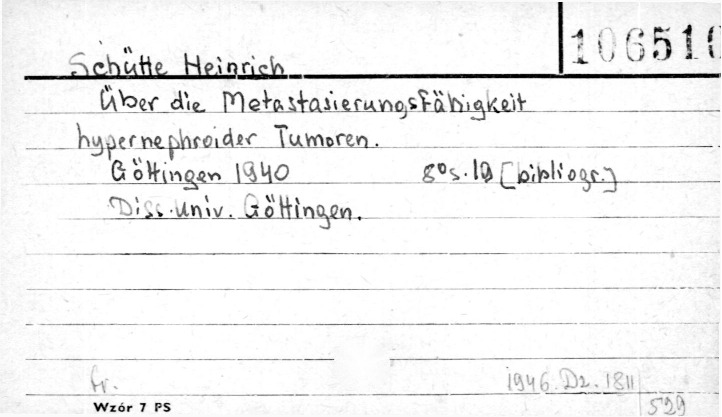 106510
Schütte Heinrich
Über die Metastasierungsfähigkeit
hypernephroider Tumoren.
Göttingen 1940 8⁰ s. 19 [bibliogr.]
Diss. Univ. Göttingen.
fr.
1946. Dz. 1811
Wzór 7 PS
529